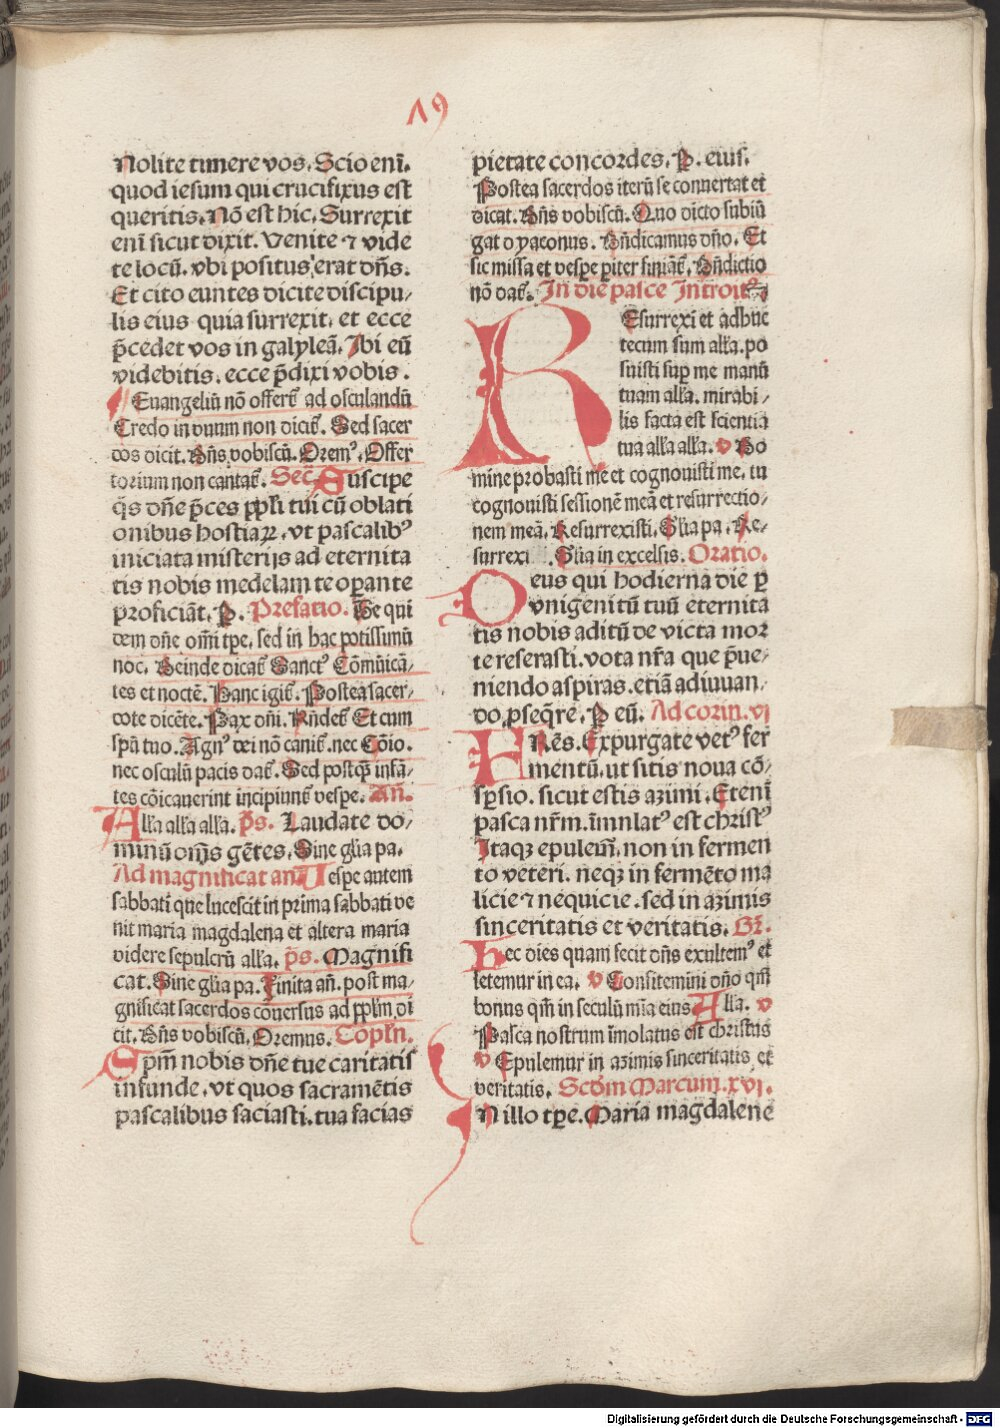 Λ9
Nolite timere vos. Scio eni̅.
quod iesum qui crucifixus est
queritis. No̅ est hic. Surrexit
eni̅ sicut dixit. Venite ⁊ vide
te locu̅. vbi positus erat dn̅s.
Et cito euntes dicite discipu/
lis eius quia surrexit. et ecce
p̅cedet vos in galylea̅. Ibi eu̅
videbitis. ecce p̅dixi vobis.
Euangeliu̅ no̅ offert᷑ ad osculandu̅
Credo in vnum non dicit᷑. Sed sacer
dos dicit. Dn̅s vobiscu̅. Orem⁹. Offer
torium non cantat᷑. Sec̅ Suscipe
q̅s dn̅e p̅ces pp̅li tui cu̅ oblati
onibus hostiaꝝ. vt pascalib⁹
iniciata misterijs ad eternita
tis nobis medelam te oꝑante
proficia̅t. P. Prefatio. Te qui
dem dn̅e om̅i tꝑe. sed in hac potissimu̅
noc. Deinde dicat᷑ Sanct⁹ Co̅mu̅ica̅/
tes et nocte̅. Hanc igit᷑. Postea sacer/
dote dice̅te. Pax dn̅i. Rn̅det᷑ Et cum
spu̅ tuo. Agn⁹ dei no̅ canit᷑. nec Co̅io.
nec osculu̅ pacis dat᷑. Sed postq̅ infa̅/
tes co̅icauerint incipiunt᷑ vespe. An̅.
Alľa alľa alľa. p̅s. Laudate do/
minu̅ om̅s ge̅tes. Sine gl̅ia pa.
Ad magnificat an̅. Vespe autem
sabbati que lucescit in prima sabbati ve
nit maria magdalena et altera maria
videre sepulcru̅ alľa. p̅s. Magnifi
cat. Sine gl̅ia pa. Finita an̅. post ma/
gnificat sacerdos co̅uersus ad pp̅lm̅ di
cit. Dn̅s vobiscu̅. Oremus. Copln̅.
Spm̅ nobis dn̅e tue caritatis
infunde. vt quos sacrame̅tis
pascalibus saciasti. tua facias
pietate concordes. P. eius.
Postea sacerdos iteru̅ se conuertat et
dicat. Dn̅s vobiscu̅. Quo dicto subiu̅
gat dyaconus. Bn̅dicamus dn̅o. Et
sic missa et vespe ꝑiter finia̅t᷑. Bn̅dictio
no̅ dat᷑. In die pasce Introit⁹
Resurrexi et adhuc
tecum sum alľa. po
suisti suꝑ me manu̅
tuam alľa. mirabi/
lis facta est scientia
tua alľa alľa. v Do
mine probasti me et cognouisti me. tu
cognouisti sessione̅ mea̅ et resurrectio/
nem mea̅. Resurrexisti. Gl̅ia pa. Re/
surrexi Gl̅ia in excelsis. Oratio.
Deus qui hodierna die ꝑ
vnigenitu̅ tuu̅ eternita
tis nobis aditu̅ de victa mor
te reserasti. vota nr̅a que p̅ue/
niendo aspiras. etia̅ adiuuan/
do ꝓseq̅re. P eu̅. Ad corin. vj
FRe̅s. Expurgate vet⁹ fer
mentu̅. ut sitis noua co̅/
sꝑsio. sicut estis azimi. Eteni̅
pasca nr̅m. i̅mlat⁹ est christ⁹
Itaqꝫ epulem̅. non in fermen
to veteri. neqꝫ in ferme̅to ma
licie ⁊ nequicie. sed in azimis
sinceritatis et veritatis. Gr̅.
Hec dies quam fecit dn̅s exultem⁹ et
letemur in ea. v Confitemini dn̅o qm̅
bonus qm̅ in seculu̅ mi̅a eius Alľa. v
Pasca nostrum i̅molatus est christus
v Epulemur in azimis sinceritatis et
veritatis. Scd̅m Marcum. xvi.
IN illo tꝑe. Maria magdalene
Digitalisierung gefördert durch die Deutsche Forschungsgemeinschaft - DFG